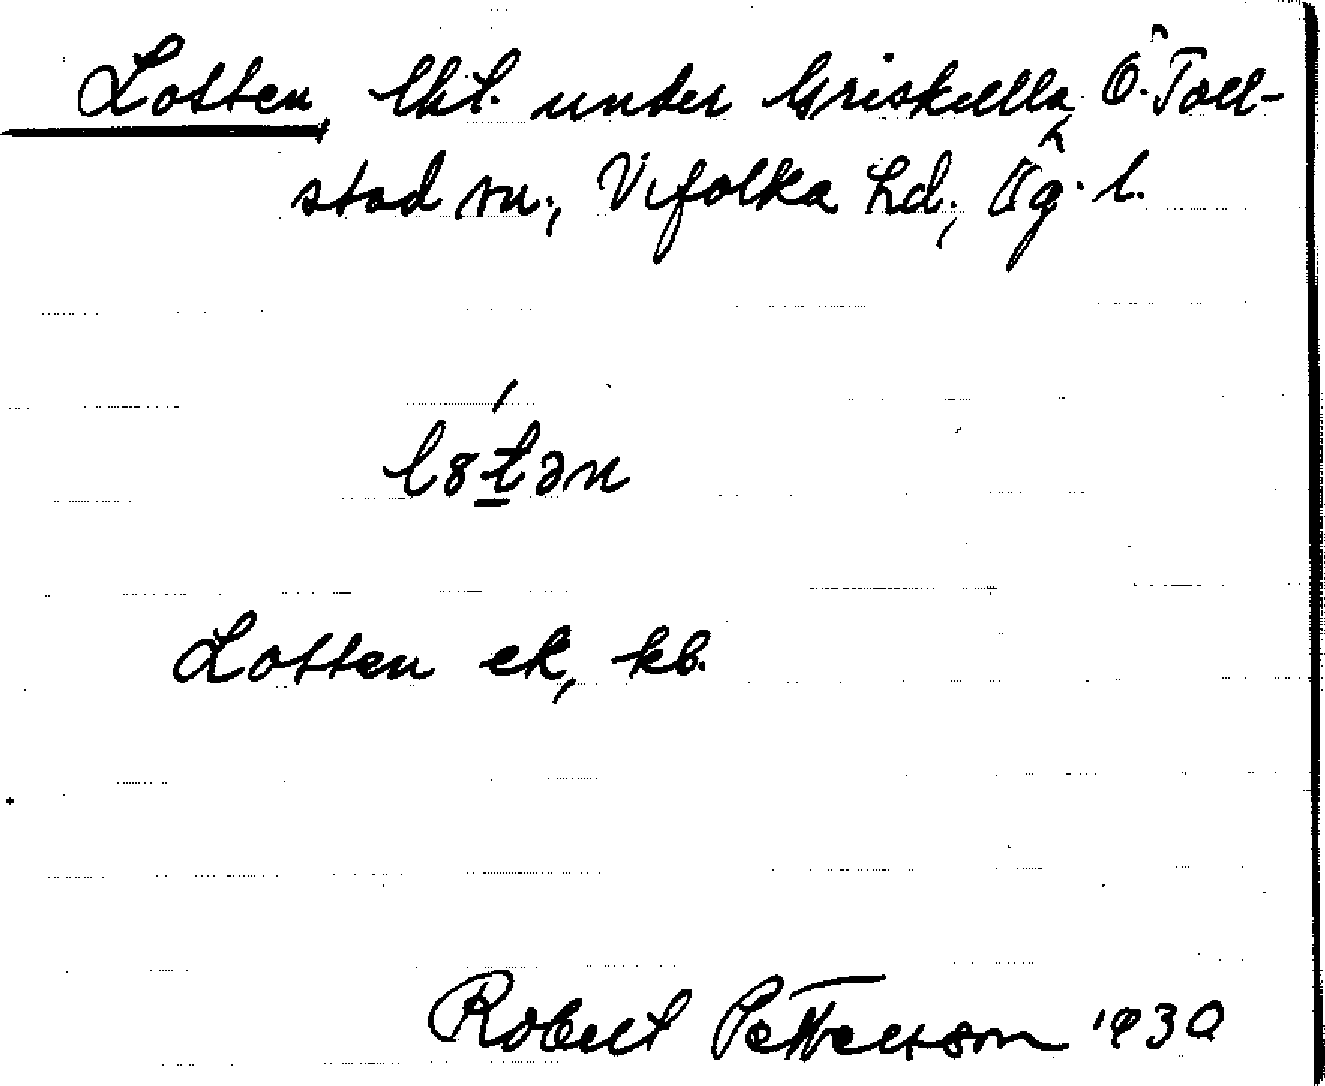 Lotten, lht. under Griskulla, Ö. Toll-
stad sn., Vifolka hd., Ög. l.
Lotten ek, kb.
Robert Petterson 1930